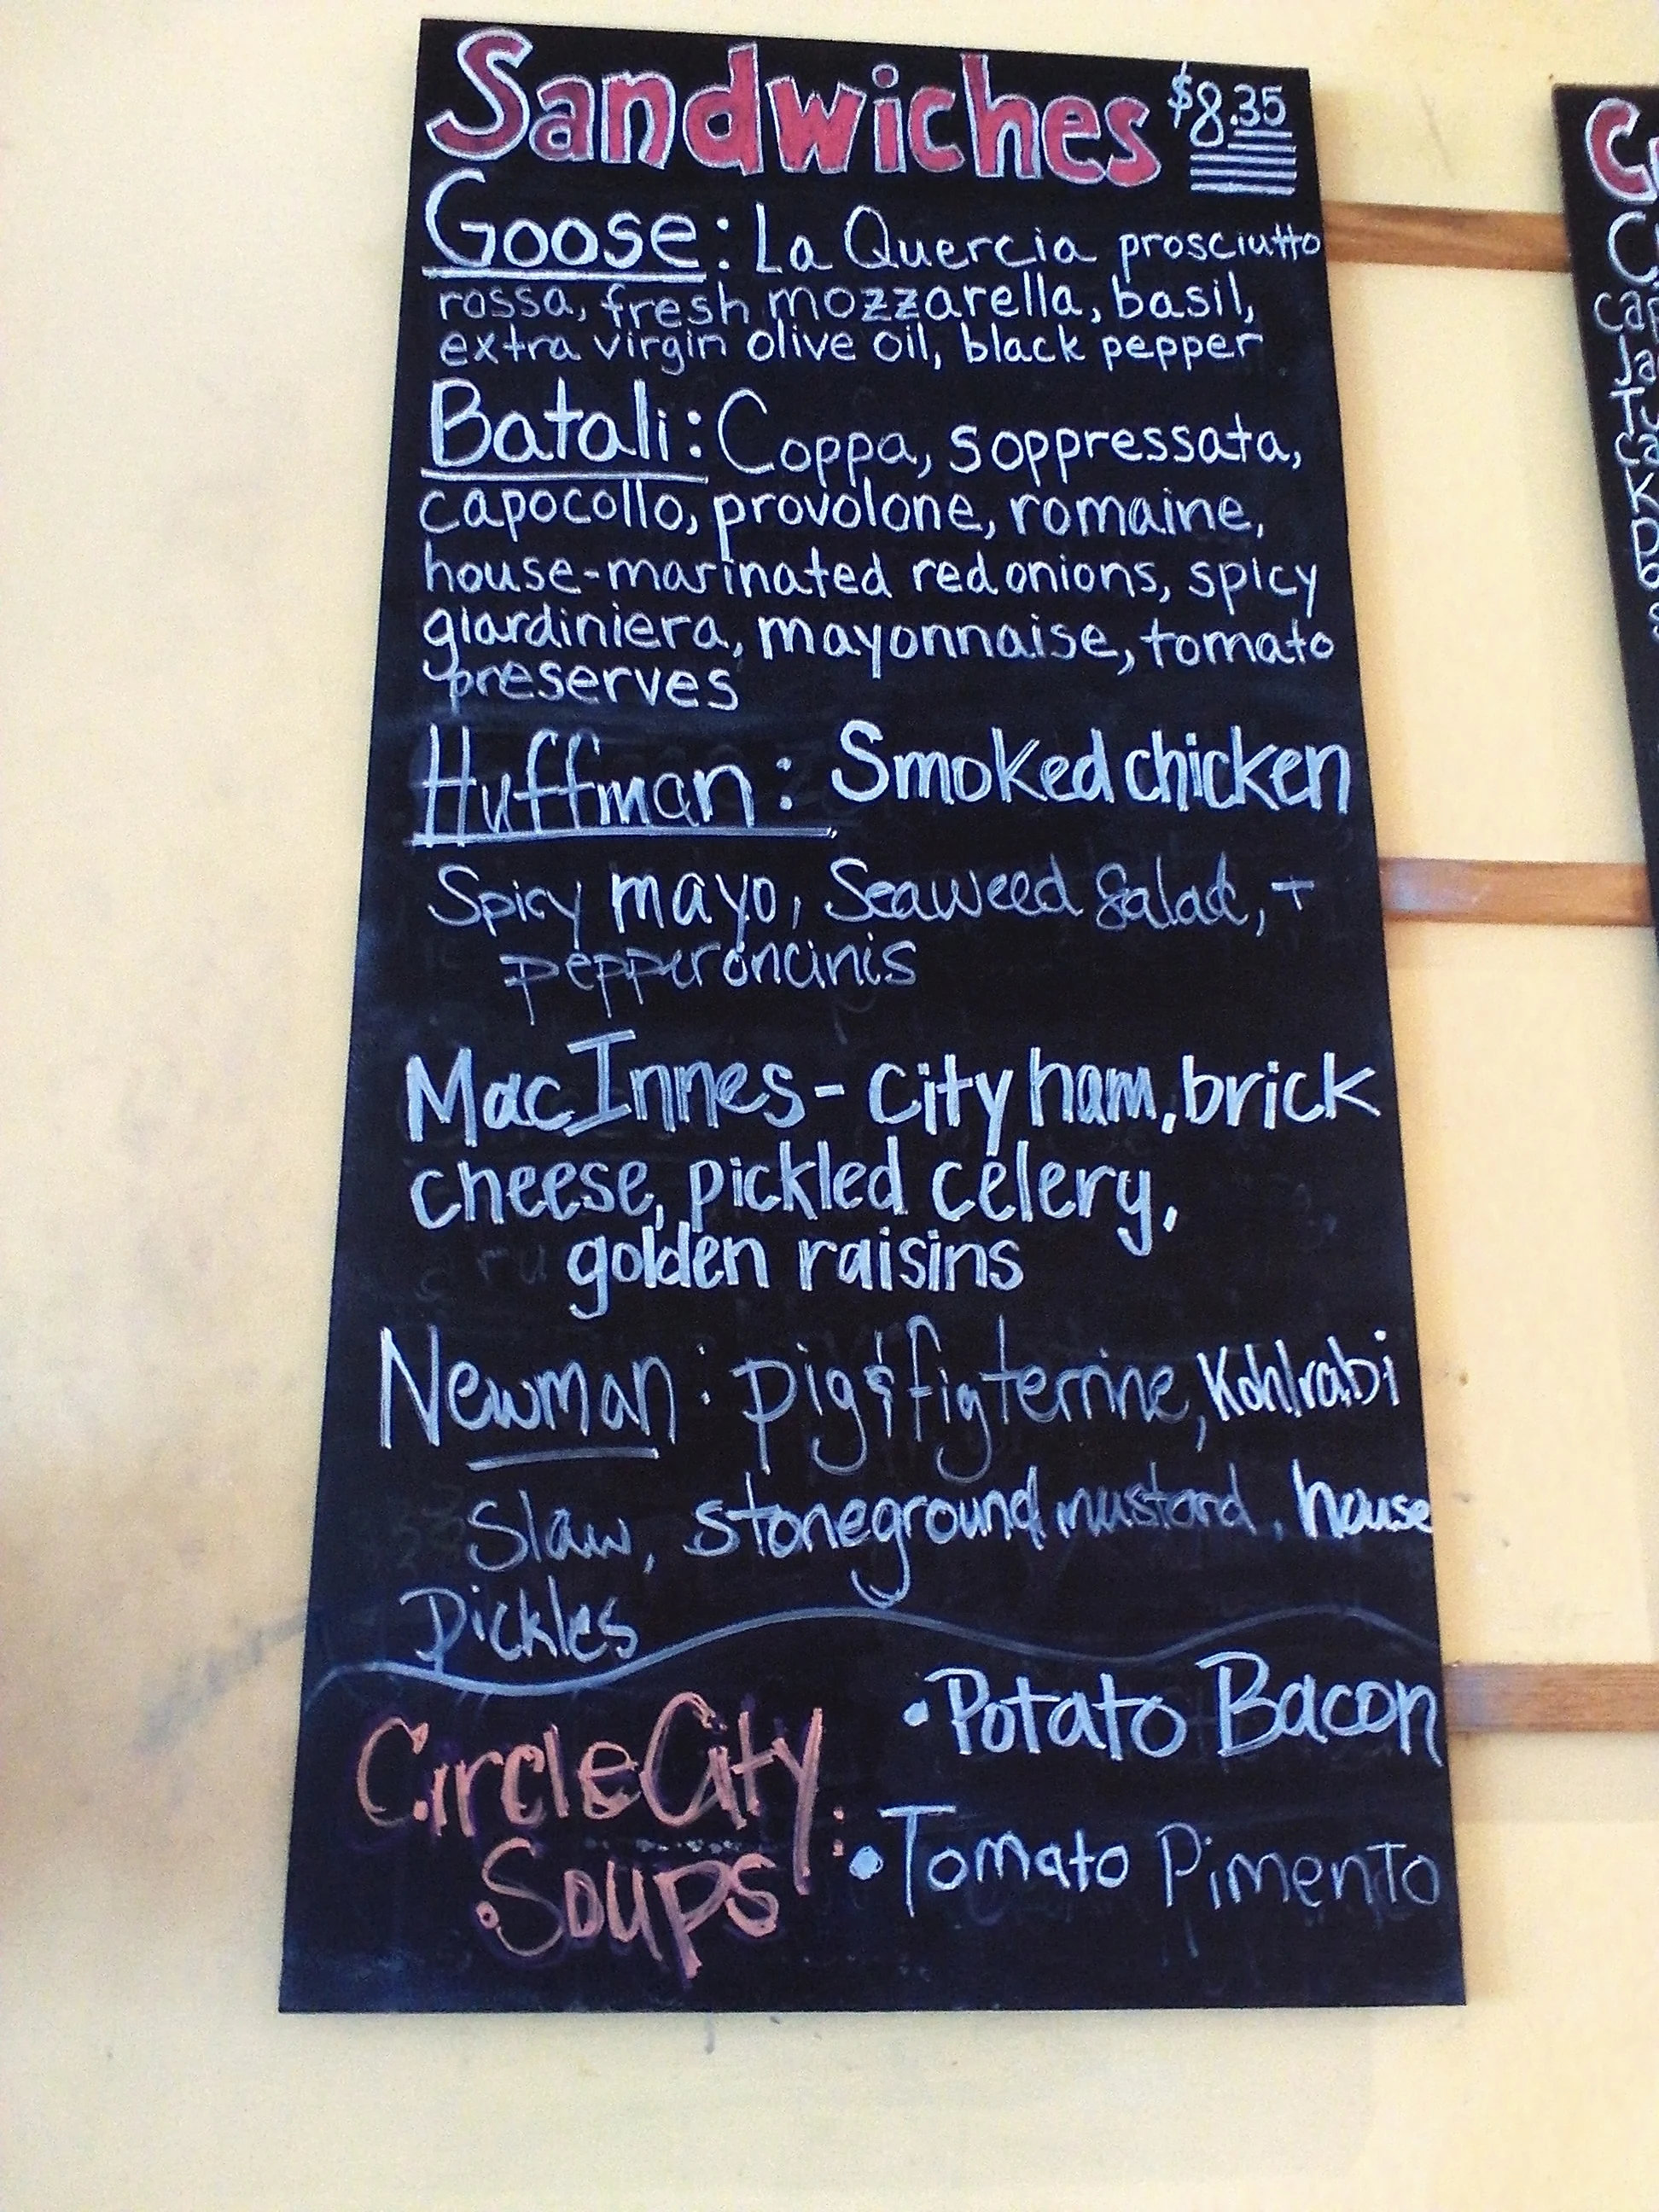 Sandwiches $8.35
Goose: La Quercia prosciutto
rossa, fresh mozzarella, basil,
extra virgin olive oil, black pepper
Batali: Coppa, soppressata,
capocollo, provolone, romaine,
house-marinated red onions, spicy
giardiniera, mayonnaise, tomato
preserves
Huffman: Smoked chicken
Spicy mayo, Seaweed Salad, +
pepperoncinis
MacInnes - city ham, brick
cheese, pickled celery,
golden raisins
Newman: pig & fig terrine, Kohlrabi
Slaw, stoneground mustard, house
Pickles
Circle City
Soups:
• Potato Bacon
• Tomato Pimento